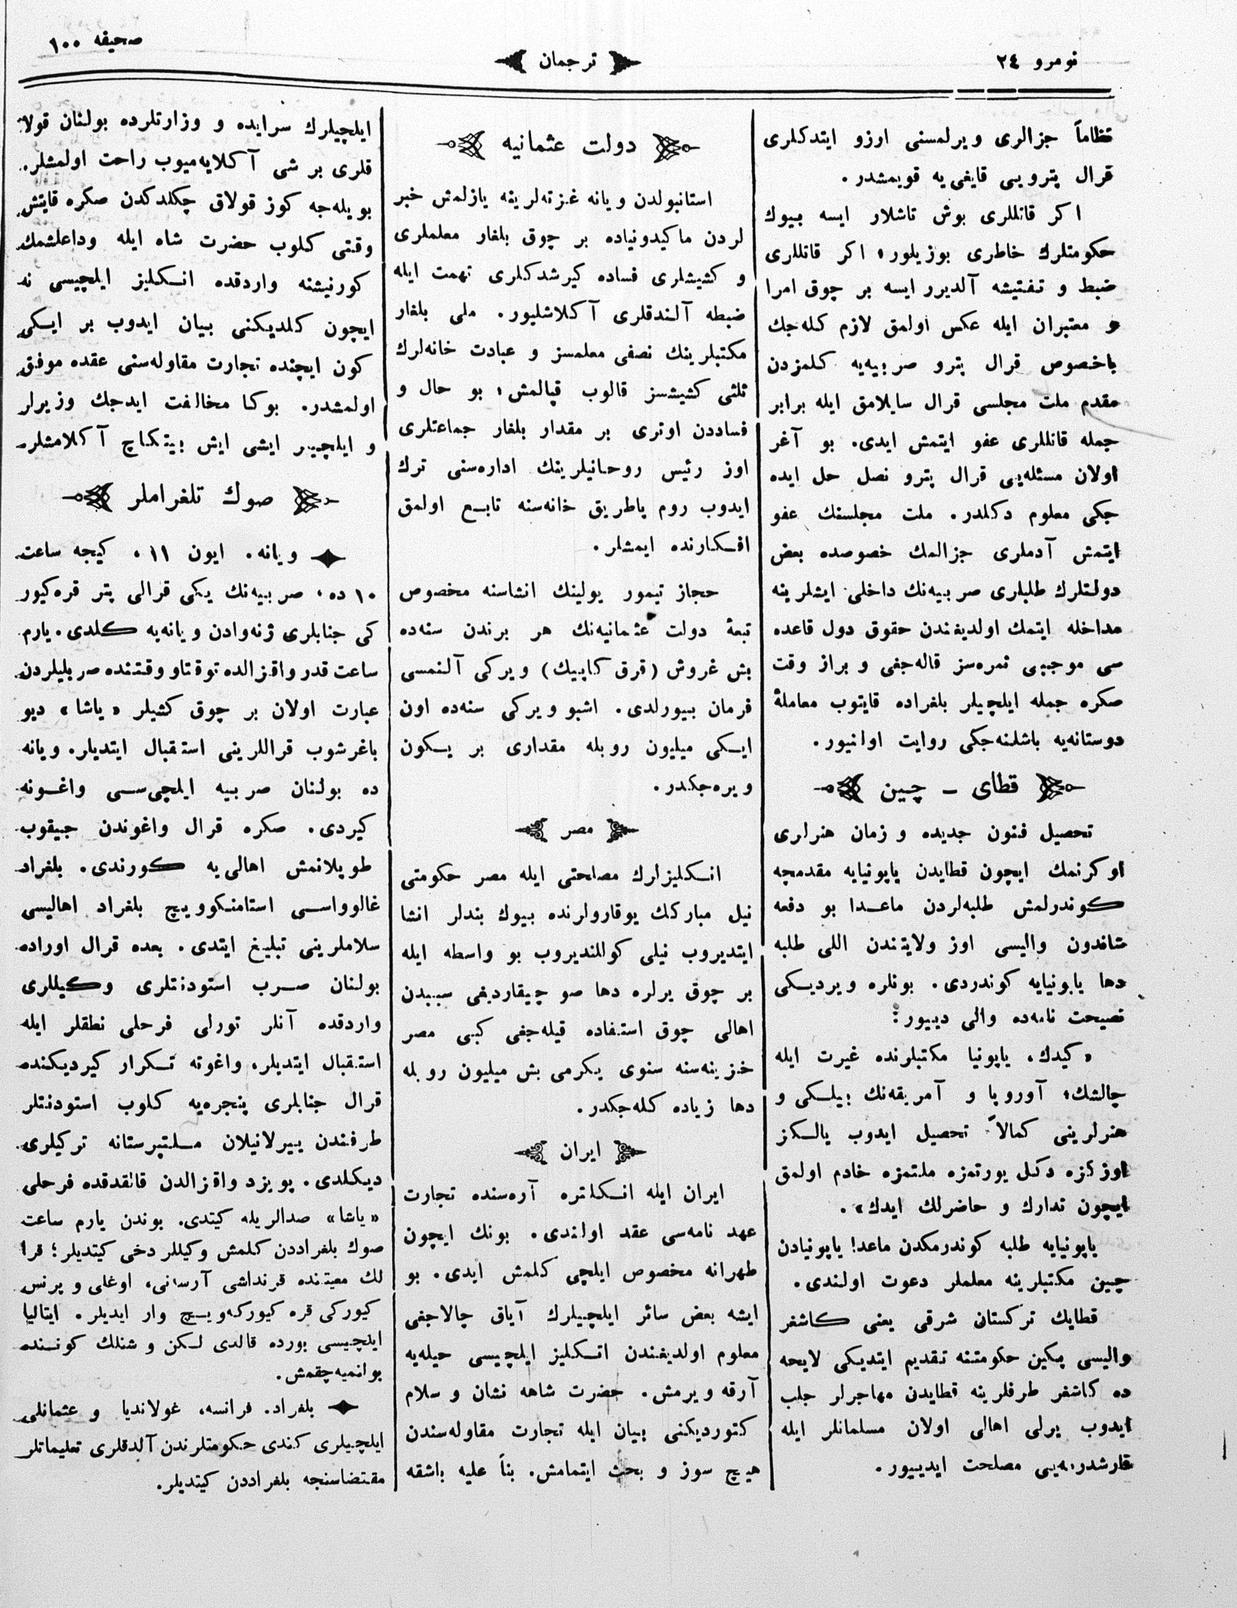 نومرو ٢٤
ترجمان
صحیفه ١٠٠
نظاماً جزالری ویرلمسنی ارزو ایتدكلری
قرال پترویی قایغی‌یه قویمشدر.
اكر قاتللری بوش تاشلار ایسه بیوك
حكومتلرك خاطری بوزیلور؛ اكر قاتللری
ضبط و تفتیشه آلدیرر ایسه بر چوق امرا
و معتبران ایله عكس اولمق لازم كله‌جك
باخصوص قرال پترو صربیه‌یه كلمزدن
مقدم ملت مجلسی قرال سایلامق ایله برابر
جمله قاتللری عفو ایتمش ایدی. بو آغر
اولان مسئله‌یی قرال پترو نصل حل ایده
جكی معلوم دكلدر. ملت مجلسنك عفو
ایتمش آدملری جزالمك خصوصده بعض
دولتلرك طلبلری صربیه‌نك داخلی ایشلرینه
مداخله ایتمك اولدیغندن حقوق دول قاعده
سی موجبی ثمره‌سز قاله‌جغی و براز وقت
صكره جمله ایلچیلر بلغراده قایتوب معاملهٔ
دوستانه‌یه باشلنه‌جكی روایت اولنیور.
قطای - چین
تحصیل فنون جدیده و زمان هنرلری
اوكرنمك ایچون قطایدن یاپونیایه مقدمچه
كوندرلمش طلبه‌لردن ماعدا بو دفعه
شاندون والیسی اوز ولایتندن اللی طلبه
دها یاپونیایه كوندردی. بونلره ویردیكی
نصیحت نامه‌ده والی دییور:
«كیدك، یاپونیا مكتبلرنده غیرت ایله
چالشك؛ آوروپا و آمریقه‌نك بیلكی و
هنرلرینی كمالاً تحصیل ایدوب یالكز
اوزكزه دكل یورتمزه ملتمزه خادم اولمق
ایچون تدارك و حاضرلك ایدك».
یاپونیایه طلبه كوندرمكدن ماعدا یاپونیادن
چین مكتبلرینه معلملر دعوت اولندی.
قطایك تركستان شرقی یعنی كاشغر
والیسی پكین حكومتنه تقدیم ایتدیكی لایحه
ده كاشغر طرفلرینه قطایدن مهاجرلر جلب
ایدوب یرلی اهالی اولان مسلمانلر ایله
قارشدرمه‌یی مصلحت ایدییور.
دولت عثمانیه
استانبولدن ویانه غزته‌لرینه یازلمش خبر
لردن ماكیدونیاده بر چوق بلغار معلملری
و كشیشلری فساده كیرشدكلری تهمت ایله
ضبطه آلندقلری آكلاشلیور. ملی بلغار
مكتبلرینك نصفی معلمسز و عبادت خانه‌لرك
ثلثی كشیشسز قالوب قپالمش؛ بو حال و
فساددن اوتری بر مقدار بلغار جماعتلری
اوز رئیس روحانیلرینك اداره‌سنی ترك
ایدوب روم پاطریق خانه‌سنه تابع اولمق
افكارنده ایمشلر.
حجاز تیمور یولینك انشاسنه مخصوص
تبعهٔ دولت عثمانیه‌نك هر برندن سنه‌ده
بش غروش (قرق كاپیك) ویركی آلنمسی
فرمان بیورلدی. اشبو ویركی سنه‌ده اون
ایكی میلیون روبله مقداری بر یكون
ویره‌جكدر.
مصر
انكلیزلرك مصلحتی ایله مصر حكومتی
نیل مباركك یوقارولرنده بیوك بندلر انشا
ایتدیروب نیلی كوللندیروب بو واسطه ایله
بر چوق یرلره دها صو چیقاردیغی سببدن
اهالی چوق استفاده قیله‌جغی كبی مصر
خزینه‌سنه سنوی یكرمی بش میلیون روبله
دها زیاده كله‌جكدر.
ایران
ایران ایله انكلتره آره‌سنده تجارت
عهد نامه‌سی عقد اولندی. بونك ایچون
طهرانه مخصوص ایلچی كلمش ایدی. بو
ایشه بعض سائر ایلچیلرك آیاق چالاجغی
معلوم اولدیغندن انكلیز ایلچیسی حیله‌یه
آرقه ویرمش. حضرت شاهه نشان و سلام
كتوردیكنی بیان ایله تجارت مقاوله‌سندن
هیچ سوز و بحث ایتمامش. بناً علیه باشقه
ایلچیلرك سرایده و وزارتلرده بولنان قولا
قلری بر شی آكلایه‌میوب راحت اولمشلر.
بویله‌جه كوز قولاق چكلدكدن صكره قایتش
وقتی كلوب حضرت شاه ایله وداعلشمك
كورنیشنه واردقده انكلیز ایلچیسی نه
ایچون كلدیكنی بیان ایدوب بر ایكی
كون ایچنده تجارت مقاوله‌سنی عقده موفق
اولمشدر. بوكا مخالفت ایدجك وزیرلر
و ایلچیلر ایشی ایش بیتكاچ آكلامشلر.
صوك تلغراملر
ویانه. ایون ١١. كیجه ساعت
١٠ ده، صربیه‌نك یكی قرالی پتر قره‌كیور
كی جنابلری ژنه‌وادن ویانه‌یه كلدی. یارم
ساعت قدر واقزالده توقتاو وقتنده صربلیلردن
عبارت اولان بر چوق كشیلر «یاشا» دیو
باغرشوب قراللرینی استقبال ایتدیلر. ویانه
ده بولنان صربیه ایلچی‌سی واغونه
كیردی. صكره قرال واغوندن چیقوب
طوپلانمش اهالی‌یه كورندی. بلغراد
غالوواسی استامنكوویچ بلغراد اهالیسی
سلاملرینی تبلیغ ایتدی. بعده قرال اوراده
بولنان صرب استودنتلری وكیللری
واردقده آنلر تورلی فرحلی نطقلر ایله
استقبال ایتدیلر. واغونه تكرار كیردیكنده
قرال جنابلری پنجره‌یه كلوب استودنتلر
طرفندن ییرلانیلان ملتپرستانه تركیلری
دیكلدی. پویزد واقزالدن قالقدقده فرحلی
«یاشا» صدالریله كیتدی. بوندن یارم ساعت
صوك بلغراددن كلمش وكیللر دخی كیتدیلر؛ قرا
لك معیتنده قرنداشی آرسنی، اوغلی و پرنس
كیوركی قره كیوركه‌ویچ وار ایدیلر. ایتالیا
ایلچیسی یورده قالدی لكن و شنلك كوننده
بولنمیه‌چقمش.
بلغراد. فرانسه، غولاندیا و عثمانلی
ایلچیلری كندی حكومتلرندن آلدقلری تعلیماتلر
مقتضاسنجه بلغراددن كیتدیلر.